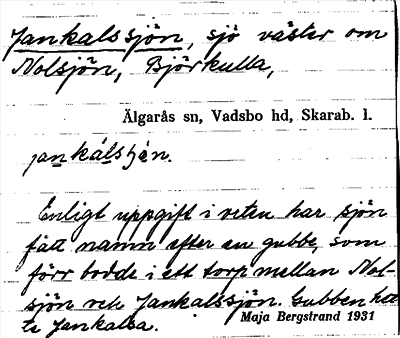 Jankalssjön, sjö väster om
Nolsjön, Björkulla,
Älgarås sn, Vadsbo hd, Skarab. l.
Enligt uppgift i orten har sjön
fått namn efter en gubbe, som
förr bodde i ett torp mellan Nol-
sjön och Jankalssjön. Gubben het-
te Jankalsa.
Maja Bergstrand 1931